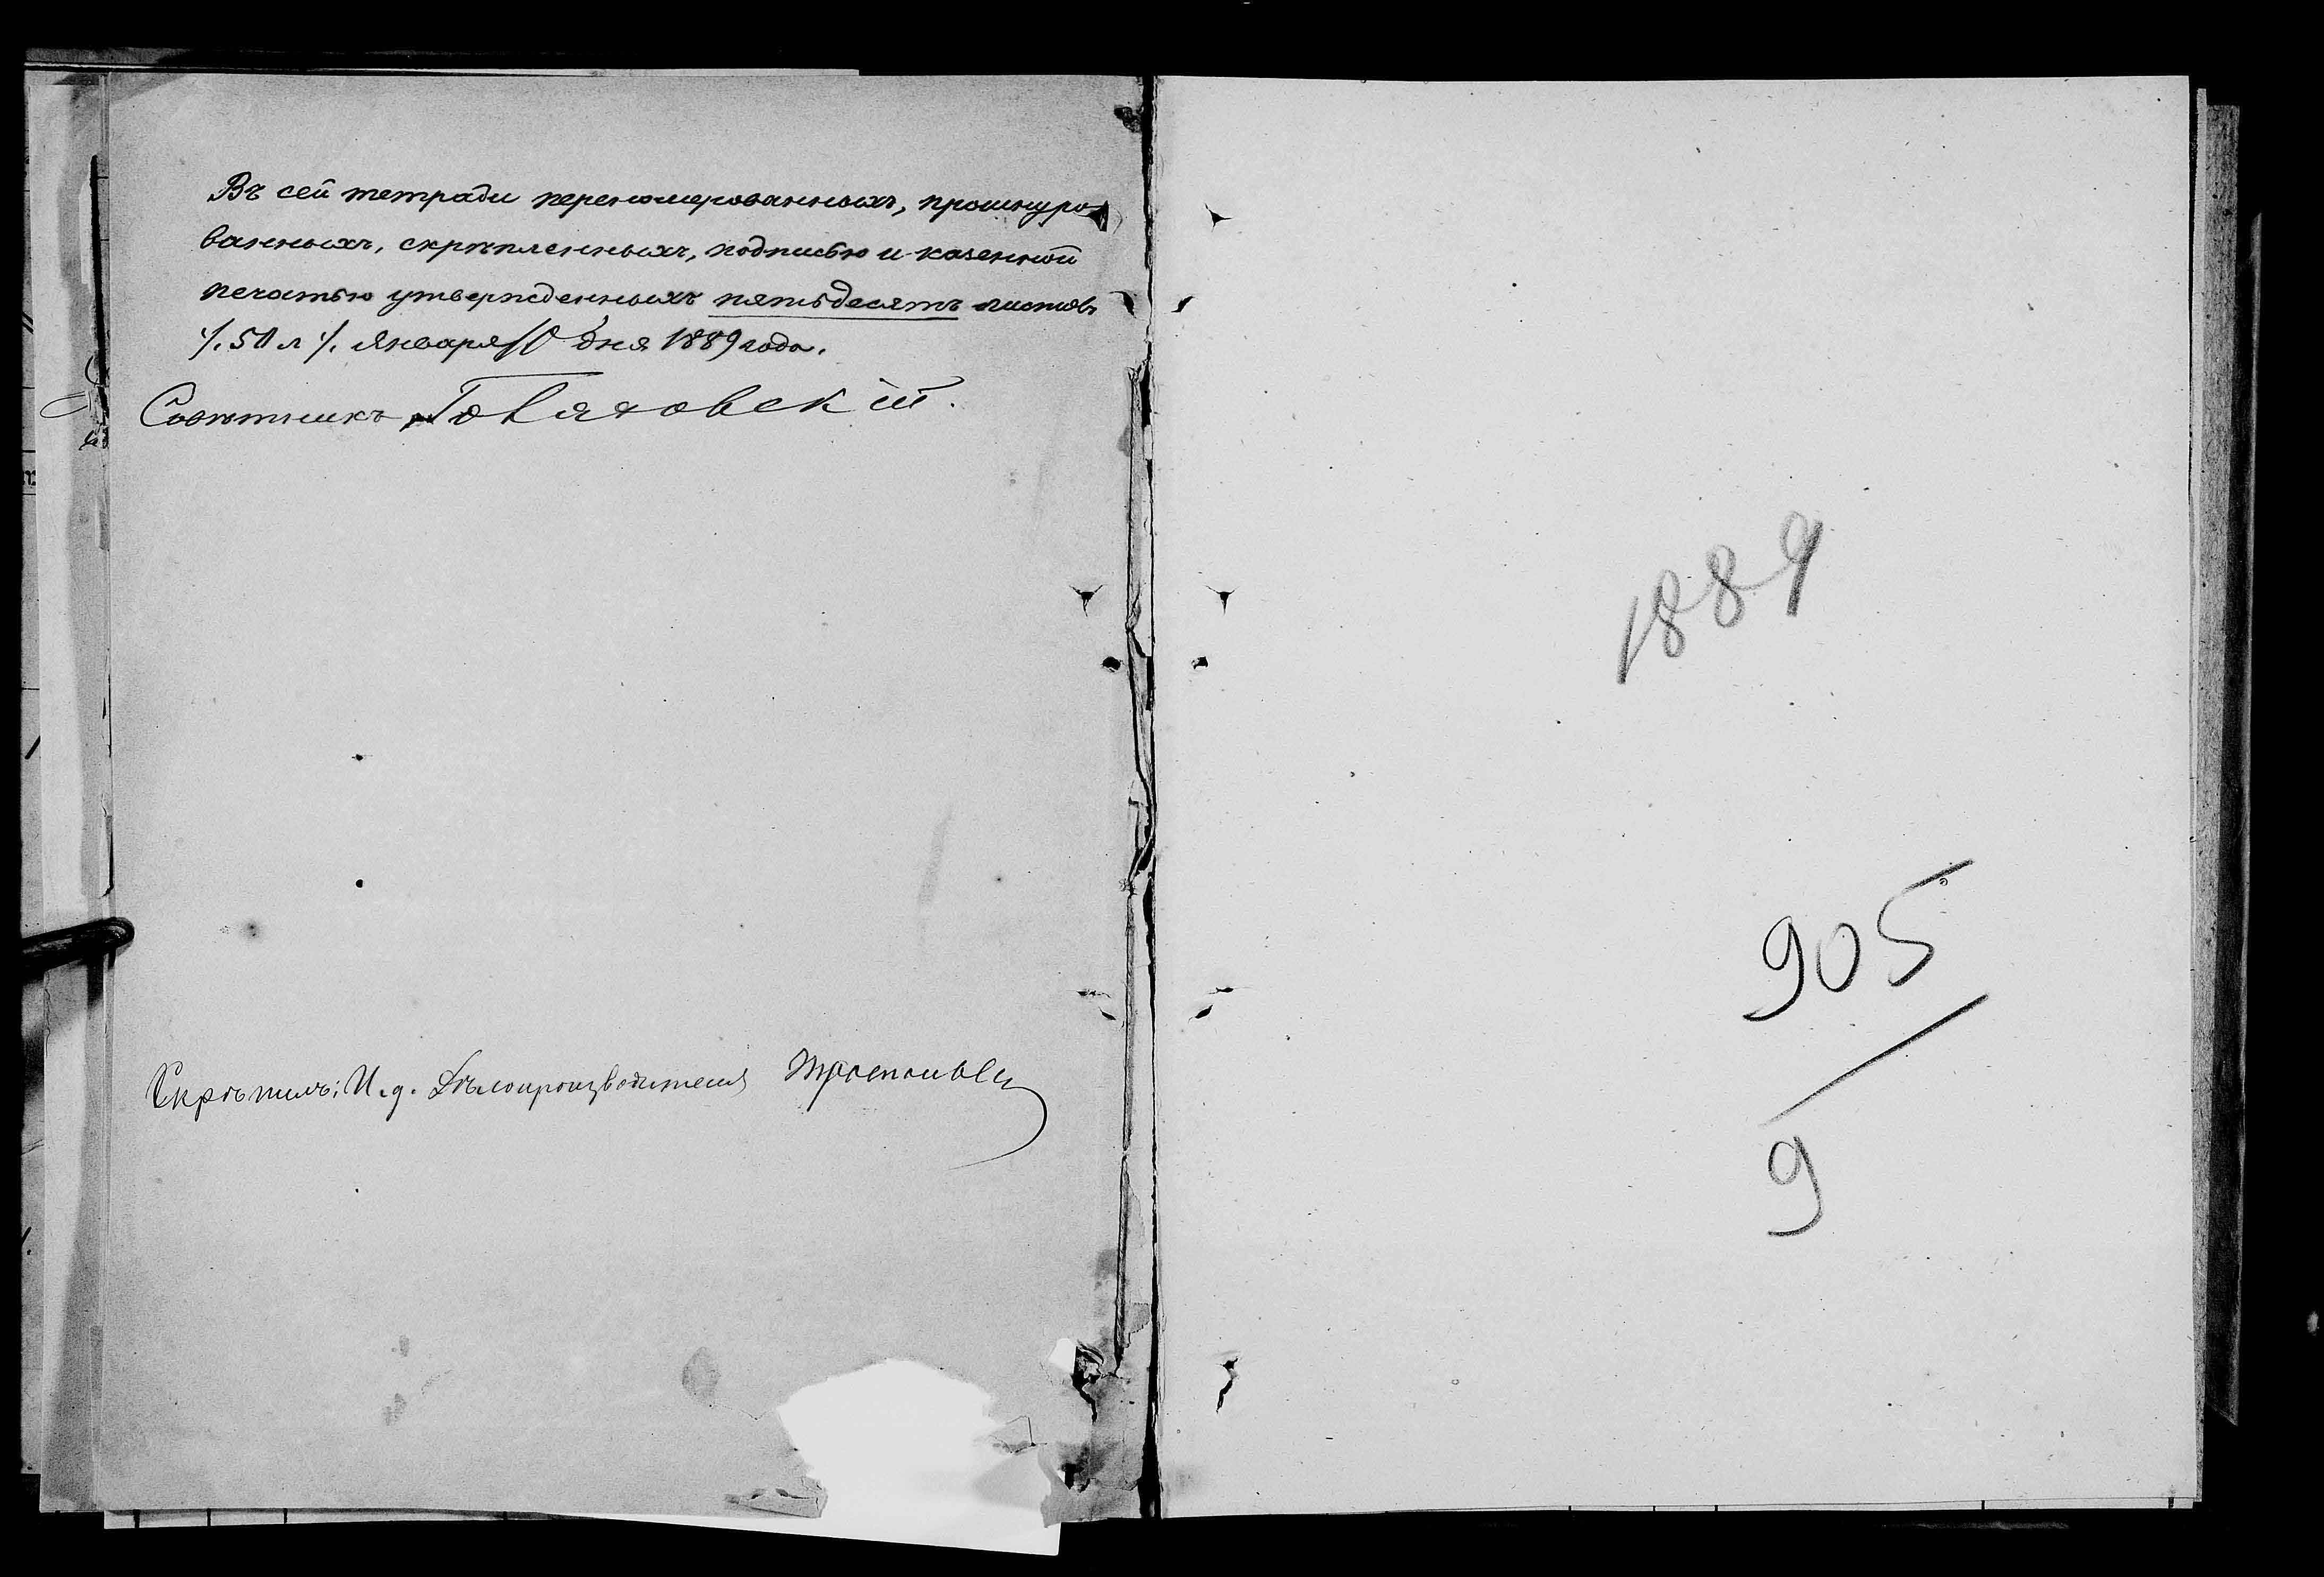 Въ сей тетради перенумерованныхъ, прошнуро-
ванныхъ, скрѣпленныхъ, подписью и казенной
печатью утвержденныхъ пятьдесятъ листовъ
/. 50 л /. Января 10 дня 1889 года.
Совѣтникъ
Скрѣпилъ: И. д. Дѣлопроизводителя
1889
905
9